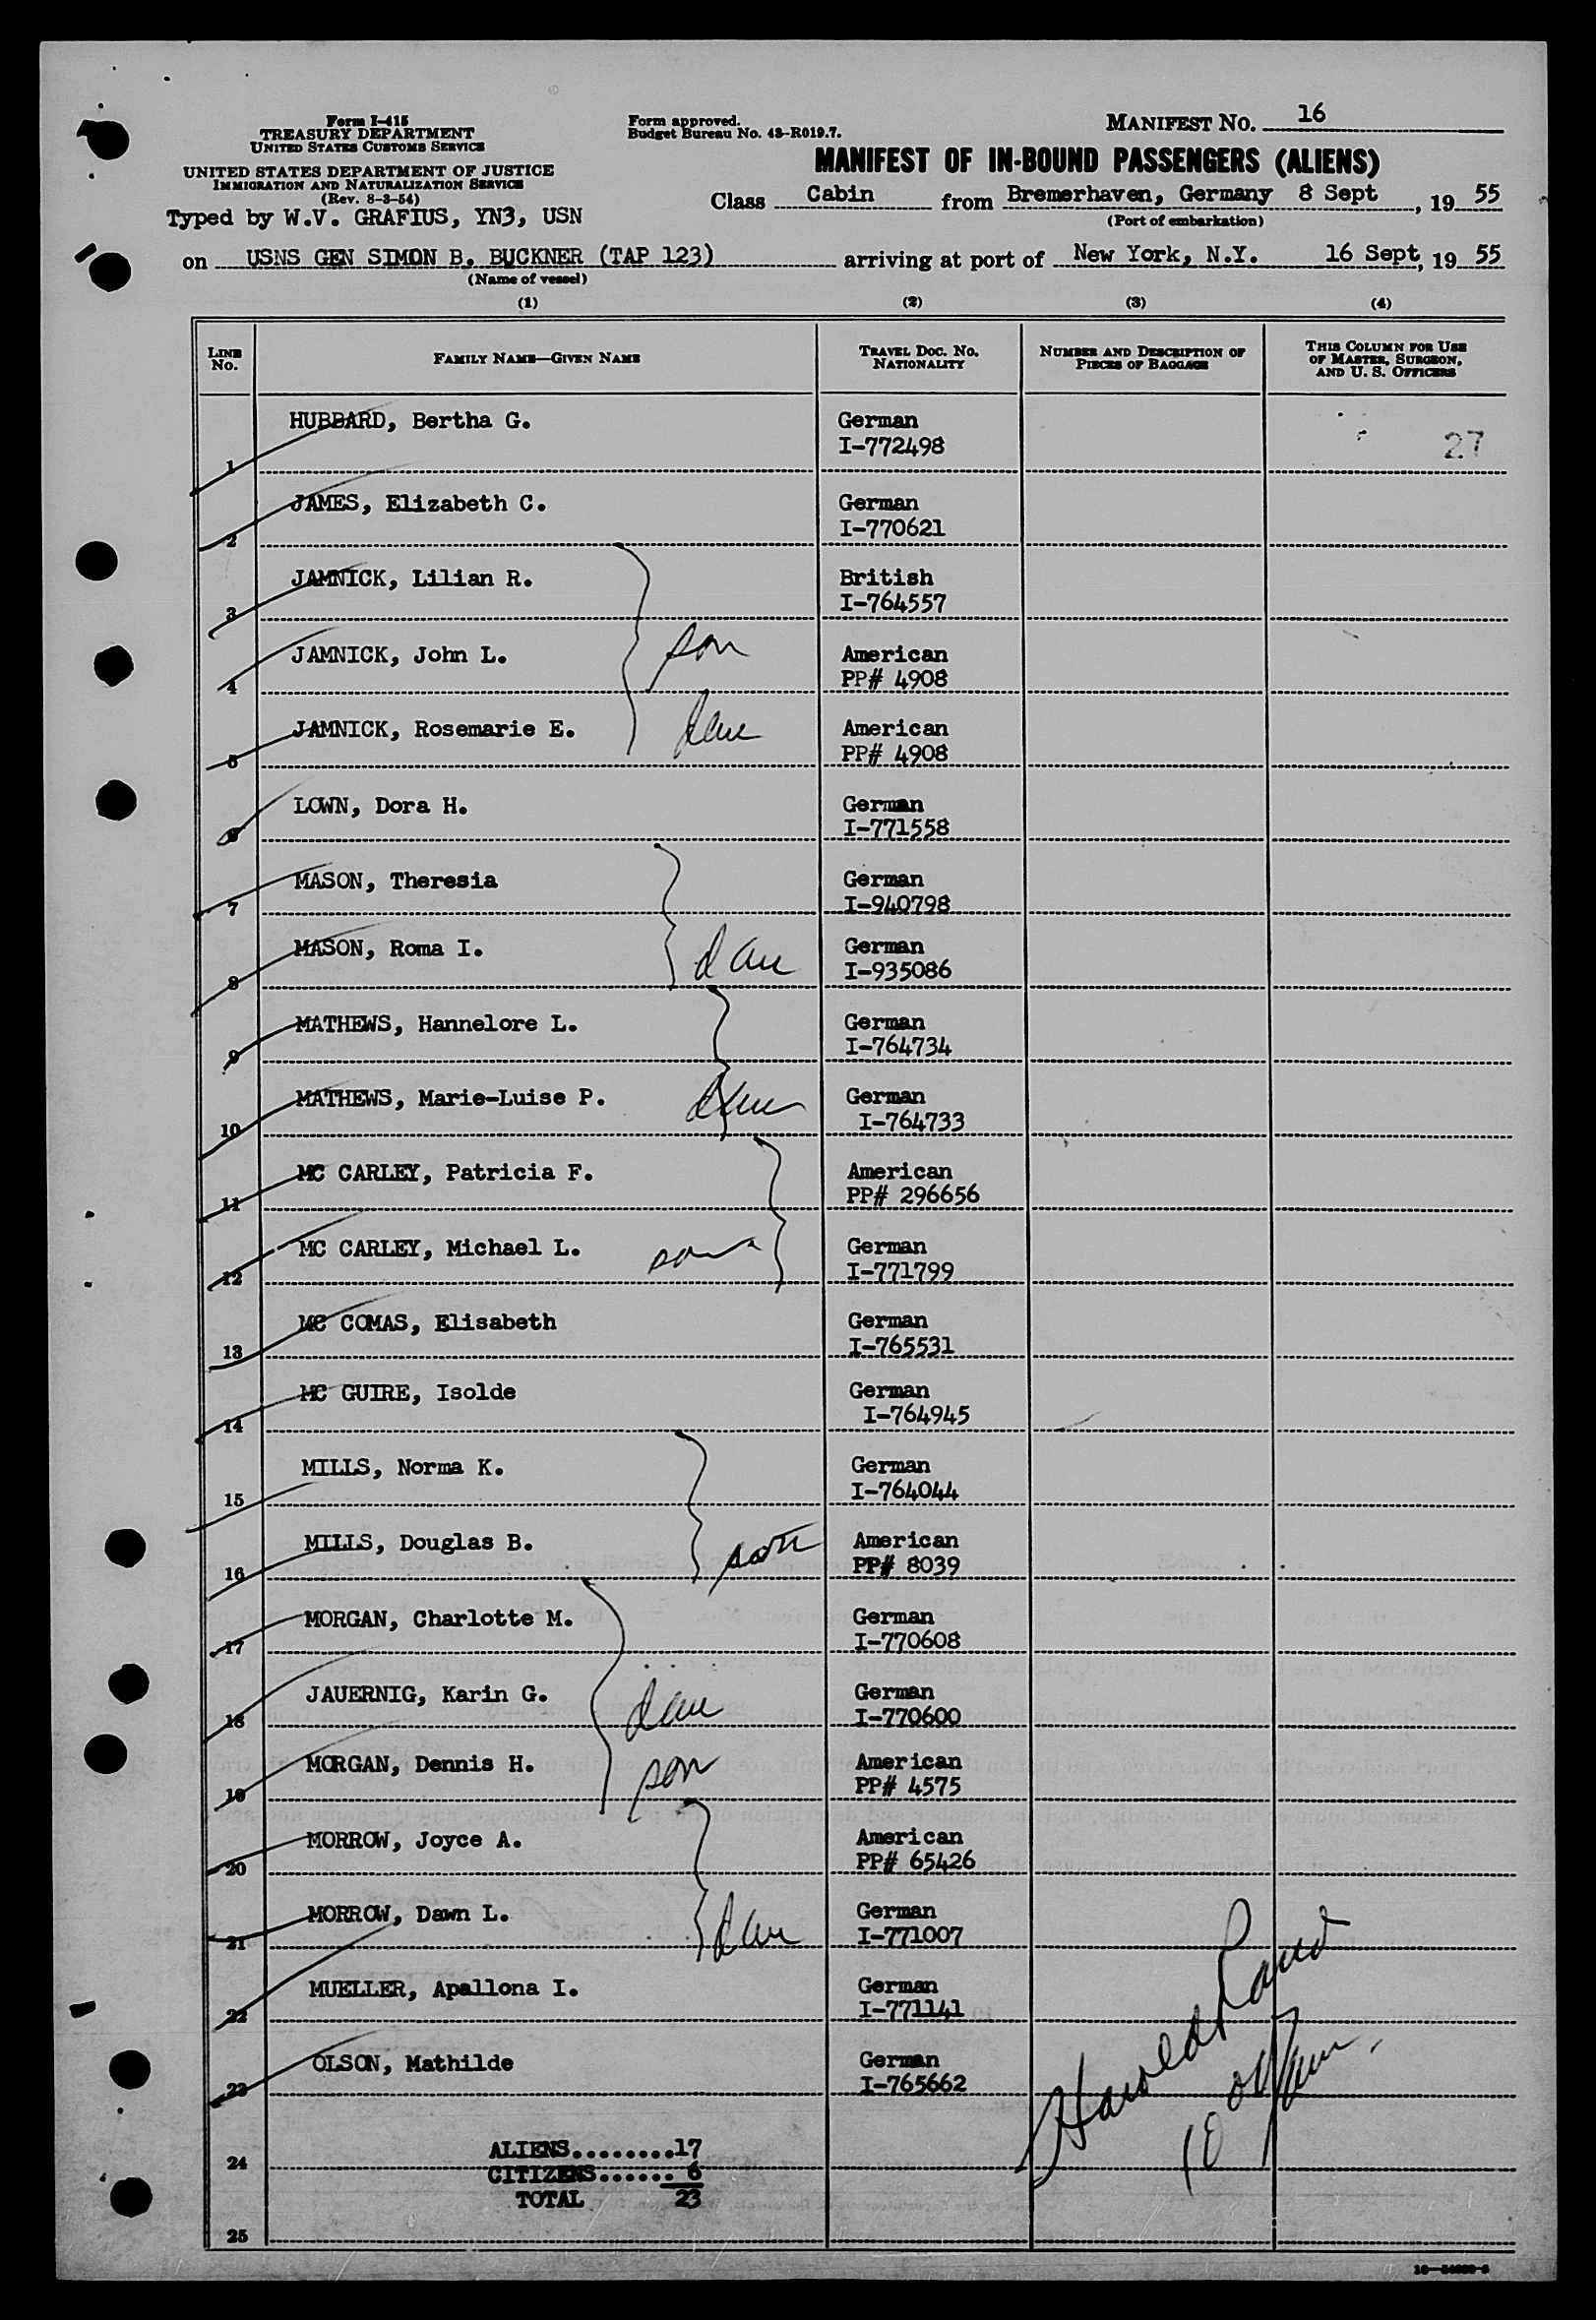 Form I-415
TREASURY DEPARTMENT
UNITED STATES CUSTOMS SERVICE
UNITED STATES DEPARTMENT OF JUSTICE
IMMIGRATION AND NATURALIZATION SERVICE
(Rev. 8-3-54)
Typed by W.V. GRAFIUS, YN3, USN
Form approved.
Budget Bureau No. 43-R019.7.
MANIFEST NO. 16
MANIFEST OF IN-BOUND PASSENGERS (ALIENS)
Class Cabin from Bremerhaven, Germany 8 Sept, 19 55
(Port of embarkation)
on USNS GEN SIMON B. BUCKNER (TAP 123) arriving at port of New York, N.Y. 16 Sept, 19 55
(Name of vessel)
(1) (2) (3) (4)
LINE NO. FAMILY NAME—GIVEN NAME TRAVEL DOC. NO. NATIONALITY NUMBER AND DESCRIPTION OF PIECES OF BAGGAGE THIS COLUMN FOR USE OF MASTER, SURGEON, AND U. S. OFFICERS
1 HUBBARD, Bertha G. German I-772498 27
2 JAMES, Elizabeth C. German I-770621
3 JAMNICK, Lilian R. British I-764557
4 JAMNICK, John L. son American PP# 4908
5 JAMNICK, Rosemarie E. dau American PP# 4908
6 LOWN, Dora H. German I-771558
7 MASON, Theresia German I-940798
8 MASON, Roma I. dau German I-935086
9 MATHEWS, Hannelore L. German I-764734
10 MATHEWS, Marie-Luise P. dau German I-764733
11 MC CARLEY, Patricia F. American PP# 296656
12 MC CARLEY, Michael L. son German I-771799
13 MC COMAS, Elisabeth German I-765531
14 MC GUIRE, Isolde German I-764945
15 MILLS, Norma K. German I-764044
16 MILLS, Douglas B. son American PP# 8039
17 MORGAN, Charlotte M. German I-770608
18 JAUERNIG, Karin G. dau German I-770600
19 MORGAN, Dennis H. son American PP# 4575
20 MORROW, Joyce A. American PP# 65426
21 MORROW, Dawn L. dau German I-771007
22 MUELLER, Apallona I. German I-771141
23 OLSON, Mathilde German I-765662
Harold
ALIENS.........17
24
CITIZENS...... 6
TOTAL 23
25